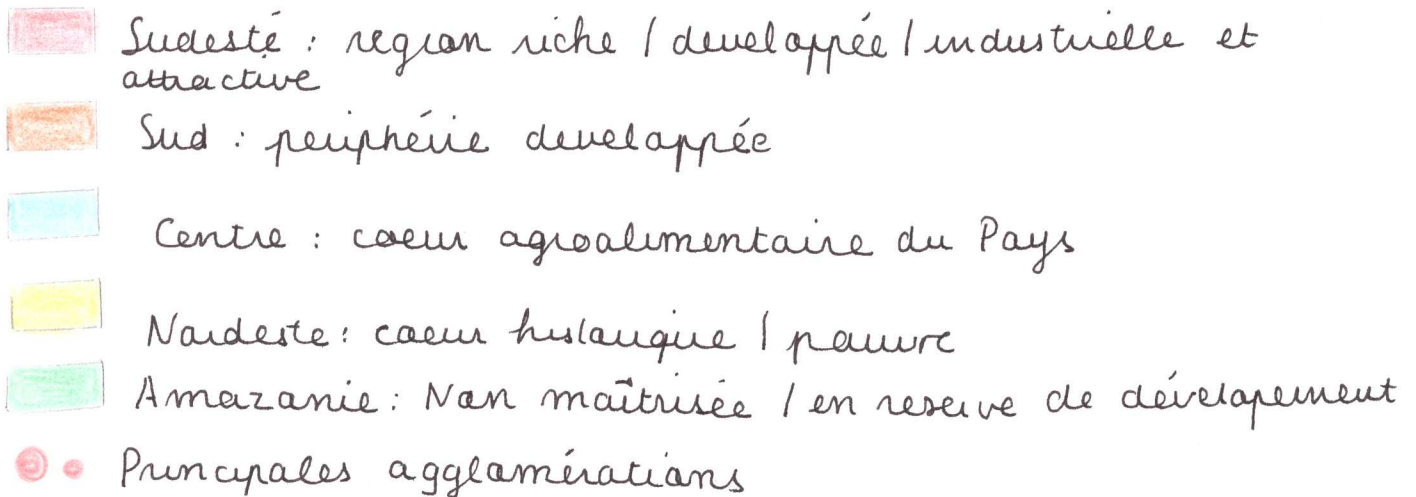 Sudesté : region riche / developpée / industrielle et
attractive
Sud : periphérie developpée
Centre : coeur agroalimentaire du Pays
Nordeste : coeur historique / pauvre
Amazonie : Non maîtrisée / en reserve de dévelopement
Principales agglomérations